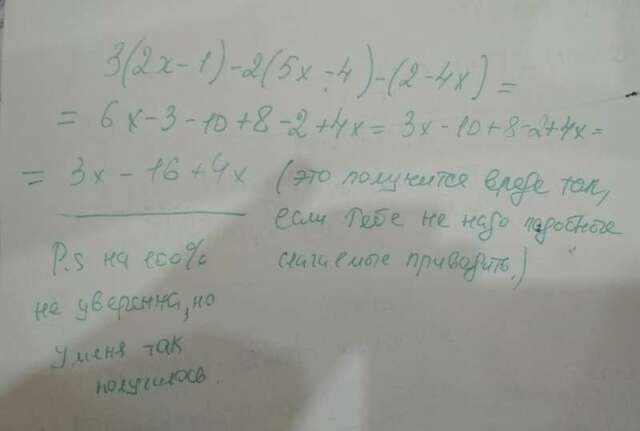 3(2x-1)-2(5x-4)-(2-4x)=
= 6x-3-10+8-2+4x = 3x-10+8-2+4x=
= 3x-16+4x (это получится вроде так,
если тебе не надо подобные
слагаемые приводить.)
P.s на 100%
не уверенна, но
у меня так
получилось.